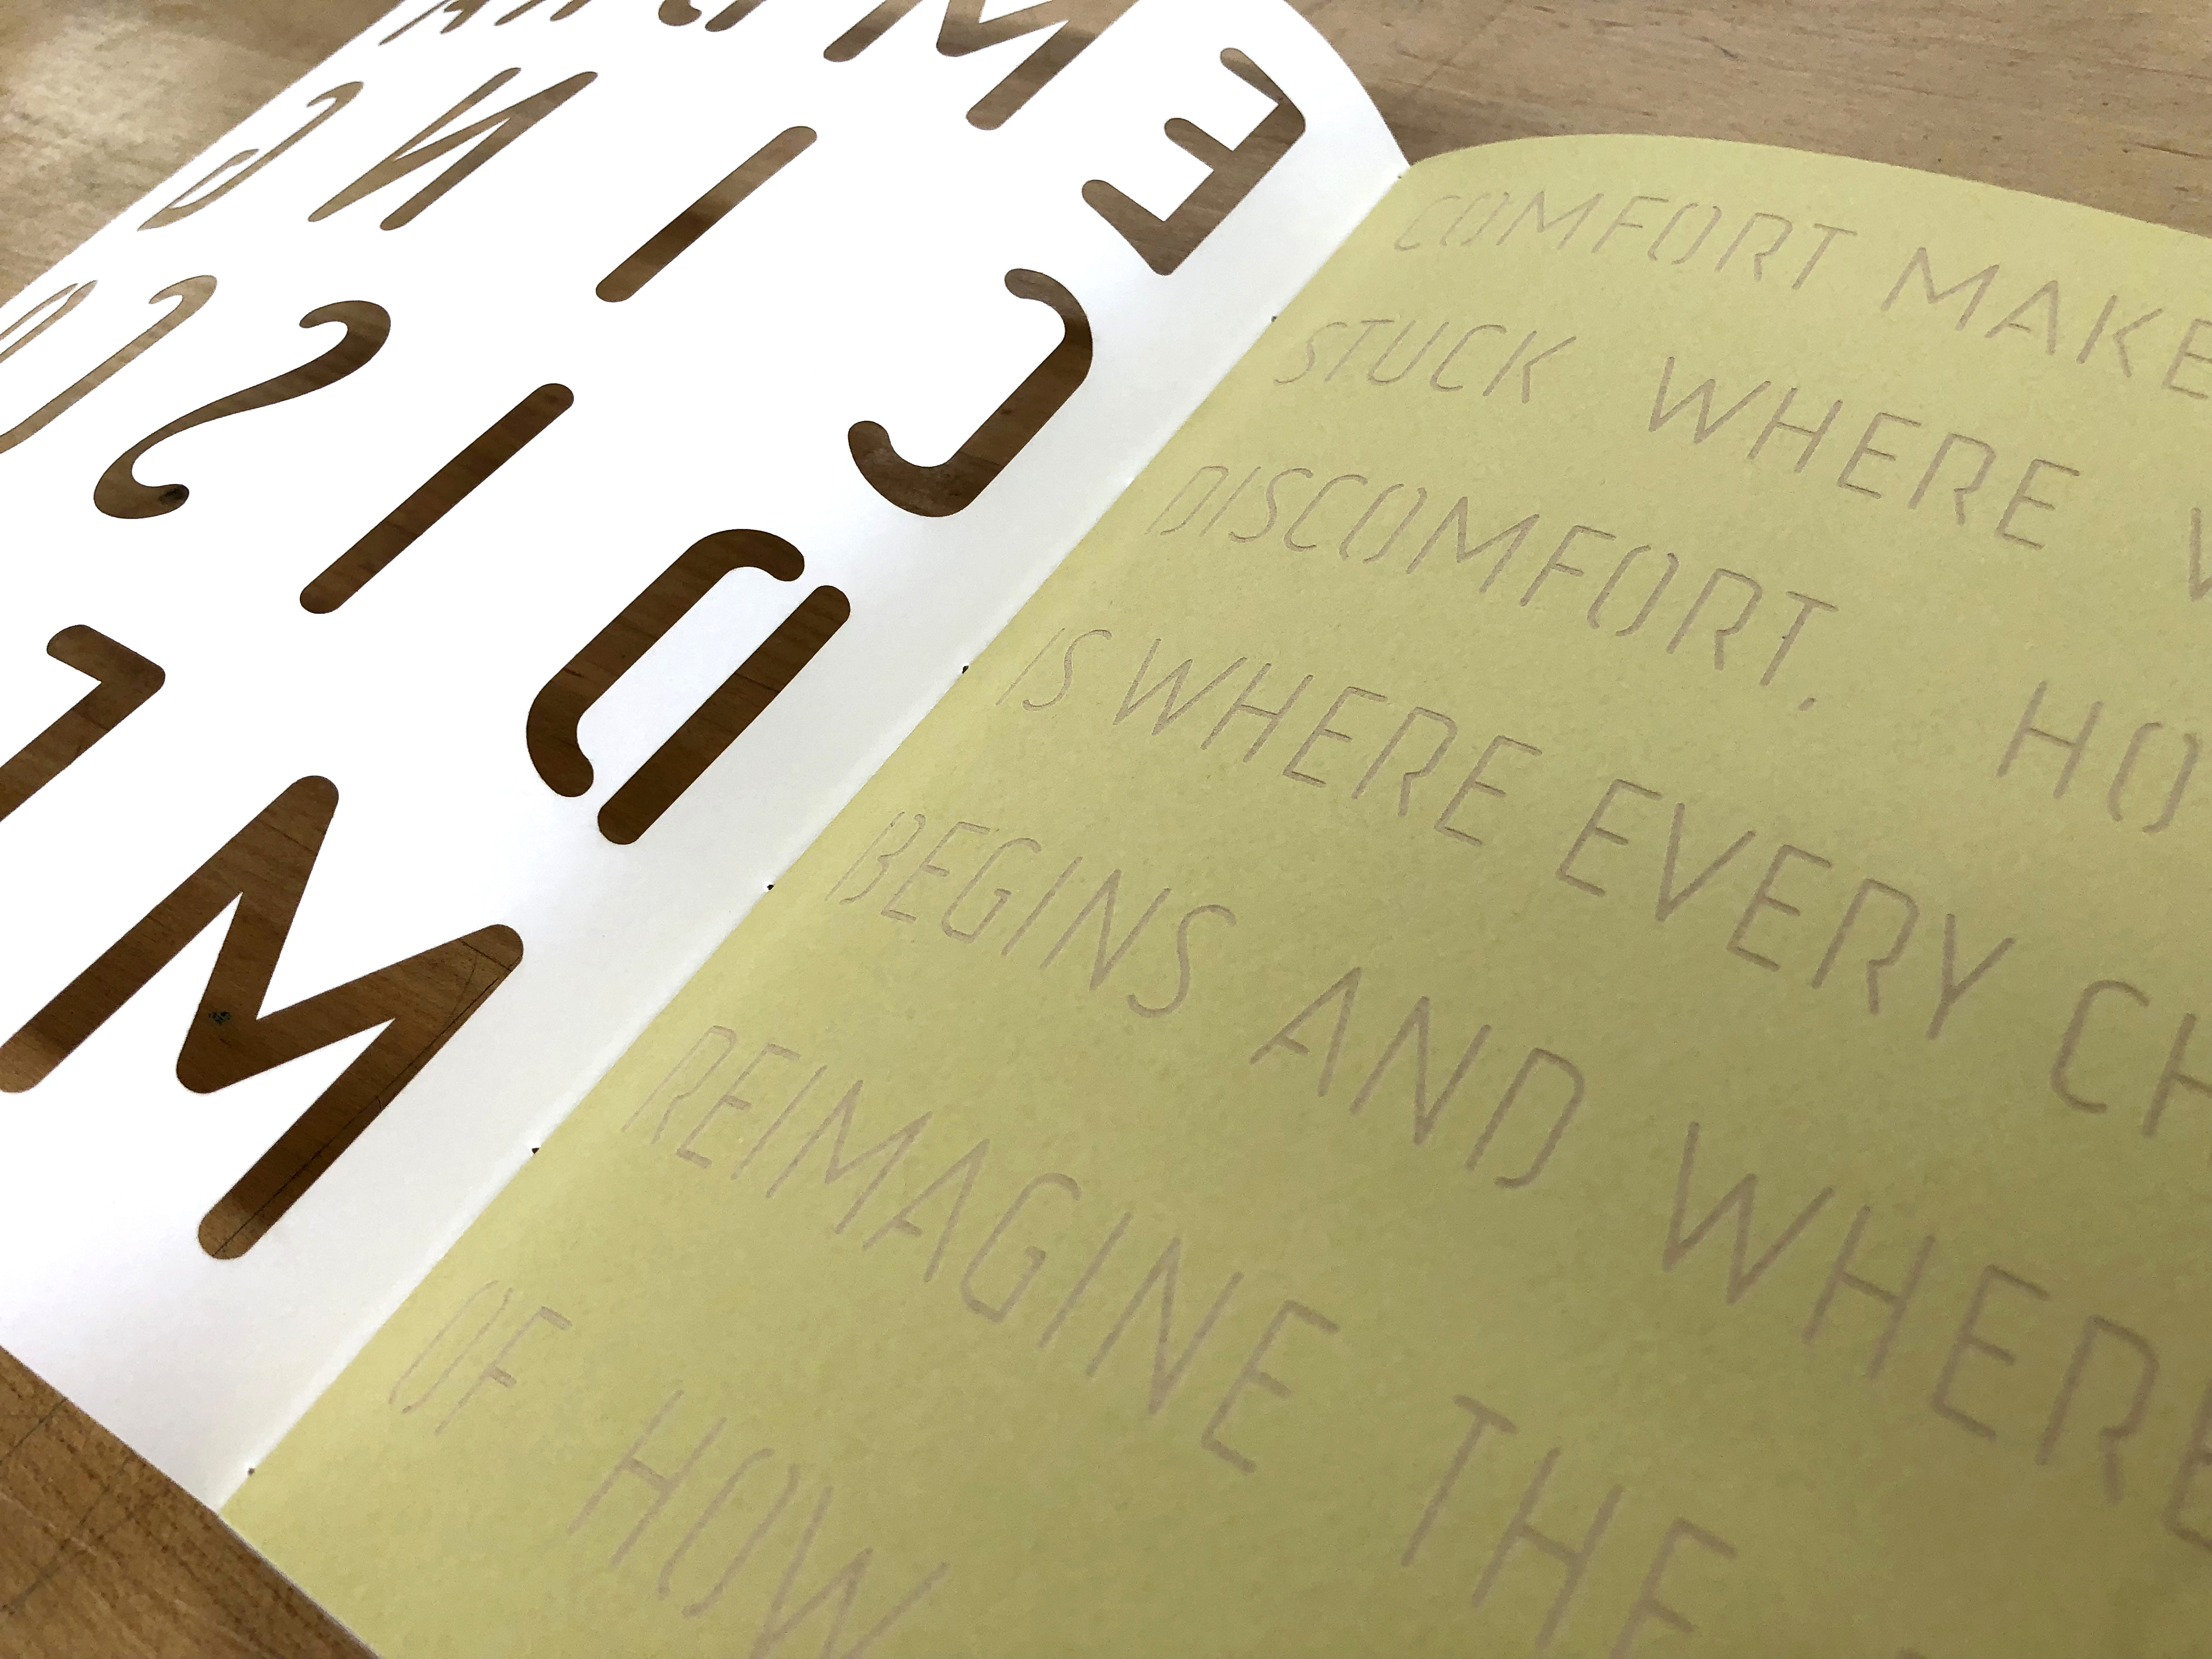 EMBRA
CING
DISCO
MF
COMFORT MAKE
STUCK WHERE
DISCOMFORT. HO
IS WHERE EVERY CH
BEGINS AND WHERE
REIMAGINE THE
OF HOW